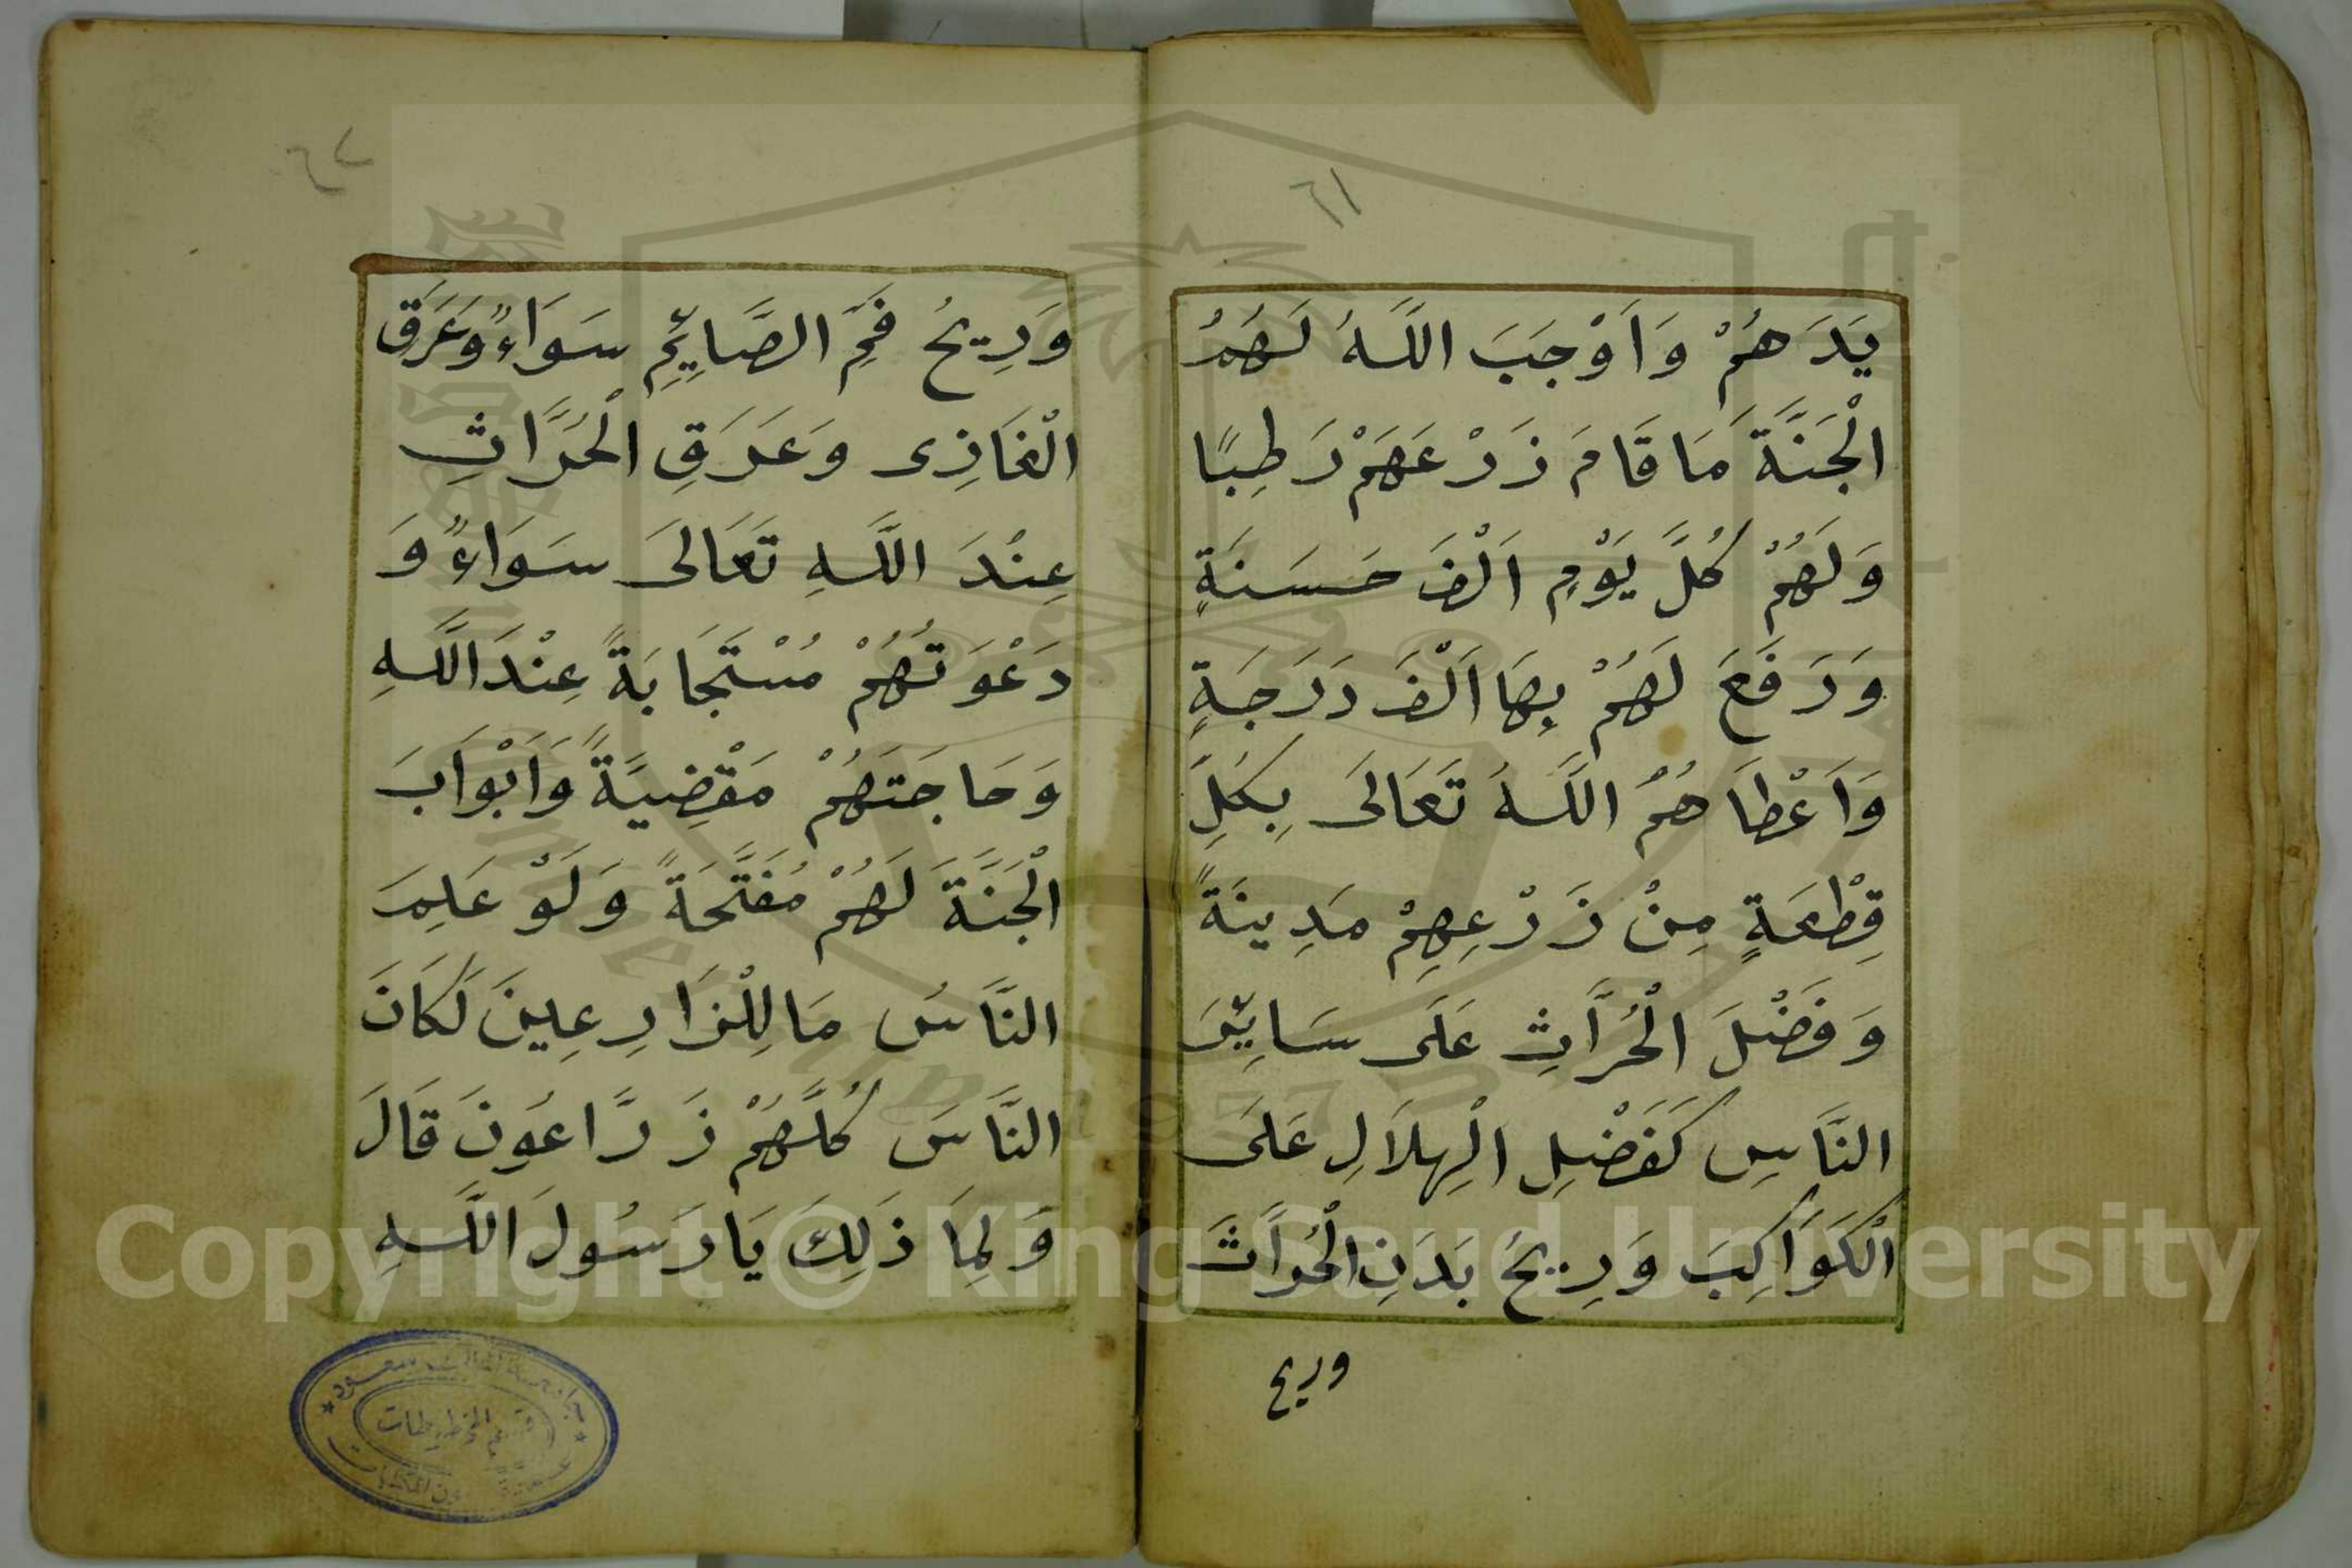 ٦١
يَدَهُمْ وَاَوْجَبَ اللَّهُ لَهُمُ
الْجَنَّةَ مَا قَامَ زَرْعَهُمْ رَطِبًا
وَلَهُمْ كُلَّ يَوْمٍ اَلْفَ حَسَنَةٍ
وَرَفَعَ لَهُمْ بِهَا اَلْفَ دَرَجَةٍ
وَاَعْطَاهُمُ اللَّهُ تَعَالَى بِكُلِّ
قِطْعَةٍ مِنْ زَرْعِهِمْ مَدِينَةً
وَفَضْلَ الْحُرَّاثِ عَلَى سَايِّرِ
النَّاسِ كَفَضْلِ الْهِلَالِ عَلَى
الْكَوَاكِبَ وَرِيحُ بَدَنِ الْحُرَّاثَ
وريح
٦٢
وَرِيحُ فَمِّ الصَّايِّمِ سَوَاءً وَعَرَقِ
الْغَازِى وَعَرَقِ الْحُرَّاثِ
عِنْدَ اللَّهِ تَعَالَى سَوَاءً وَ
دَعْوَتُهُمْ مُسْتَجَابَةً عِنْدَ اللَّهِ
وَحَاجَتَهُمْ مَقْضِيَةً وَاَبْوَابَ
الْجَنَّةَ لَهُمْ مُفَتَّحَةً وَلَوْ عَلِمَ
النَّاسُ مَا لِلْزَارِعِينَ لَكَانَ
النَّاسَ كُلَّهُمْ زَرَّاعُونَ قَالَ
وَلِمَا ذَلِكَ يَا رَسُولَ اللَّهِ
جامعة الملك سعود
قسم المخطوطات
عمادة شؤون المكتبات
Copyright © King Saud University